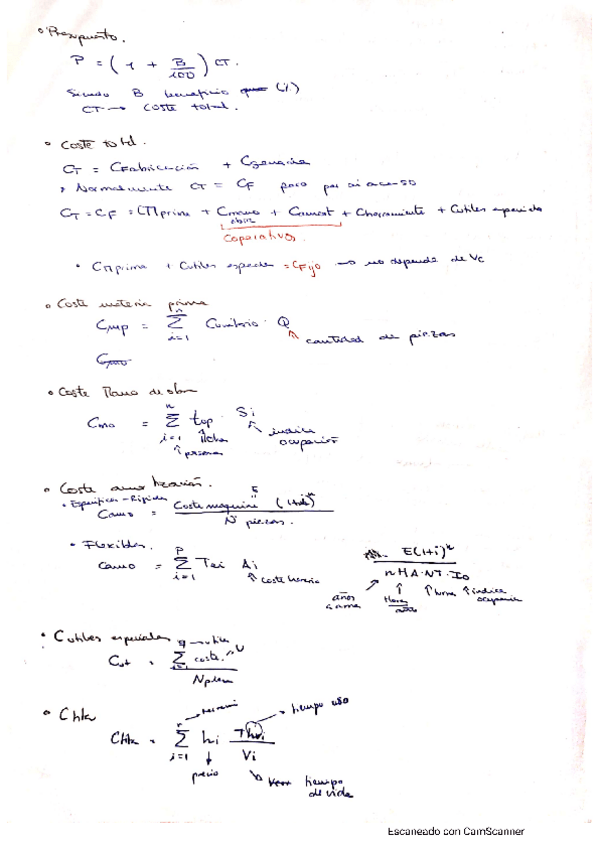 • Presupuesto.
P = (1 + B/100) CT.
Siendo B beneficio (%)
CT → coste total.
• Coste total.
CT = CFabricación +
, Normalmente CT = CF pero por si acaso
CT = CF = CMprima + Cmano obra + Camort + Cherramienta + Cutiles especiales
Coperativos
• CMprima + Cutiles especiales = CFijo → no depende de Vc
• Coste materia prima
Cmp = n Σ i=1 Cunitario · Q
↖ cantidad de piezas
• Coste Mano de obra
Cmo = n Σ i=1 top · Si
indice ocupación
• Coste amortización.
• Específicas - Rígidas
Camo = Coste maquina (1+i)ⁿ / Nº piezas.
• Flexibles.
Camo = P Σ i=1 Tei Ai
↖ coste horario
E(1+i)ⁿ / nHA·NT·Io
años Horas año turnos indice ocupación
• Cutiles especiales
Cut = Σ i=1 coste · U / Npiezas
• Chta
Chta = r Σ i=1 hi Thi / Vi
tiempo uso
precio
tiempo de vida
Escaneado con CamScanner